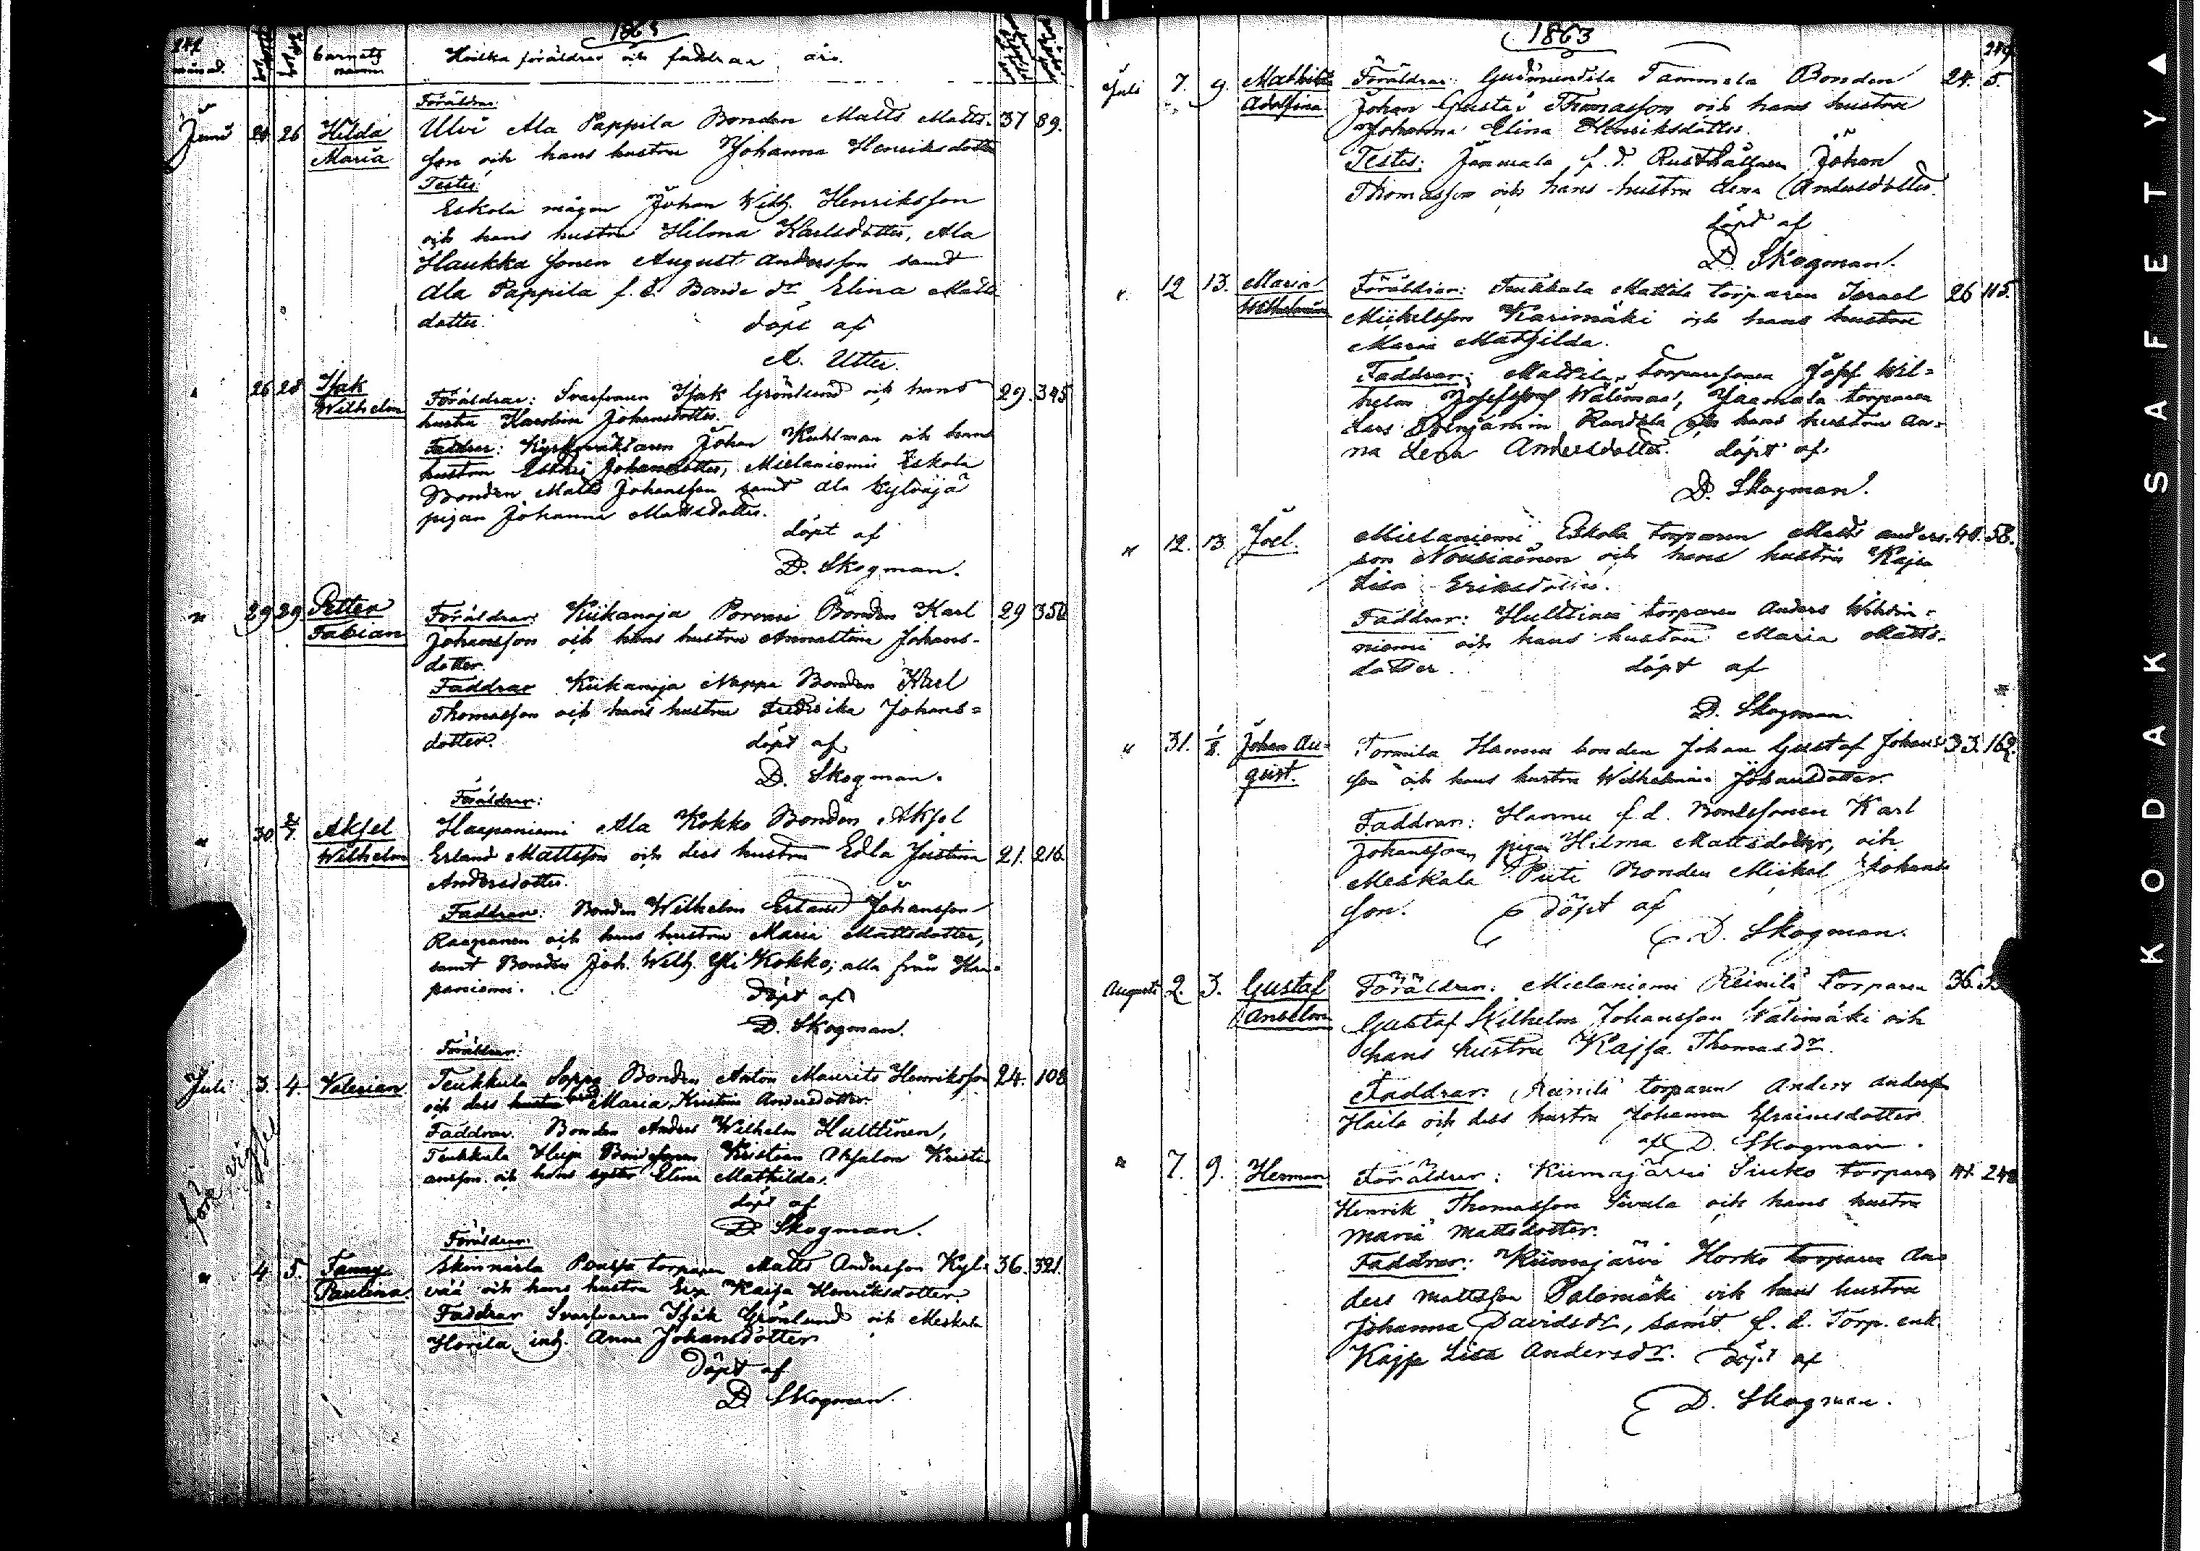 1863
månad.
barnets namn
Hvilka föräldrar och faddrar äro.
Föräldrar
Juni 24 26 Hilda Ulvi Ala Pappila Bonden Matts Matts- 37 89.
Maria son och hans hustru Johanna Henriksdotter
Testes:
Eskola mågen Johan Wilh. Henriksson
och hans hustru Hilma Karlsdotter, Ala
Haukka sonen August Andersson samt
Ala Pappila f. d. Bonde dr Elina Matts
dotter. döpt af
A. Utter.
26 28 Isak Föräldrar: Svarfvaren Isak Grönlund och hans 29. 345
Wilhelm hustru Karolina Johansdotter.
Faddrar: Kyrkovaktaren Johan Kuhlman och hans
hustru Johansdotter, Mielaniemi Eskola
Bonden Matts Johansson samt Ala Kylänjä
pigan Johanna Mattsdotter.
döpt af
D. Skogman.
" 29 29 Petter Föräldrar: Kiikanoja Porvari Bonden Karl 29 350
Fabian Johansson och hans hustru Annastina Johans-
dotter.
Faddrar Kiikanoja Nappa Bonden Karl
Thomasson och hans hustru Fredrika Johans=
dotter. döpt af
D. Skogman.
Föräldrar:
" 30 2/7 Aksel Haapaniemi Ala Kokko Bonden Aksel
Wilhelm Erland Mattsson och dess hustru Edla Justina 21. 216
Andersdotter.
Faddrar: Bonden Wilhelm Erland Johansson
Raapanen och hans hustru Maria Mattsdotter,
samt Bonden Joh. Wilh. Yli Kokko, alla från Haa-
paniemi. döpt af
D. Skogman.
Föräldrar:
Juli 3. 4. Valerian Teukkula Soppa Bonden Anton Maurits Henriksson 24. 108
och dess hustru Maria Kristina Andersdotter.
Faddrar. Bonden Anders Wilhelm Hulttinen,
Teukkula Bondesonen Kristian Absalon Kristi
ansson och hans syster Elina Mathilda.
döpt af
D. Skogman.
Föräldrar:
" 4. 5. Fanny Skinnärlä Pouspa torparen Matts Andersson Kyl= 36. 321.
Paulina. vää och hans hustru Eva Kaisa Henriksdotter
Faddrar Svarfvaren Isak Grönlund och Meskala
Horila inh. Anna Johansdotter
Döpt af
D. Skogman.
1863
Juli 7. 9. Mathilda Föräldrar: Gudmundila Tammela Bonden 24. 5.
Adolfina Johan Gustaf Thomasson och hans hustru
Johanna Elina Henriksdotter.
Testes: Jaamala f. d. Rusthållaren Johan
Thomasson och hans hustru Lena Andersdotter.
döpt af
D. Skogman.
" 12 13. Maria Föräldrar: Teukkala Mattila torparen Israel 26 115.
Wilhelmina Mickelsson Karimäki och hans hustru
Maria Mathilda.
Faddrar: Mattila torparesonen Josef Wil=
helm Josefsson Wälimaa, Jaamala torparen
Lars Benjamin Randala och hans hustru An=
na Lena Andersdotter. döpt af
D. Skogman.
" 12. 13. Joel. Mielaniemi Eskola torparen Matts Anders- 40. 58.
son Nousiainen och hans hustru Kajsa
Lisa Eriksdotter.
Faddrar: Hulttinen torparen Anders
niemi och hans hustru Maria Matts-
dotter. döpt af
D. Skogman
" 31. 1/8. Johan Au= Tormila Hannu bonden Johan Gustaf Johans 33. 162.
gust. son och hans hustru Wilhelmina Johansdotter.
Faddrar: Hannu f. d. Bondesonen Karl
Johansson, pigan Hilma Mattsdotter, och
Meskala Piiti Bonden Mickel Johans
son. döpt af
D. Skogman.
Augusti 2. 3. Gustaf Föräldrar: Mielaniemi Reinilä Torparen 36.
Anselm Gustaf Wilhelm Johansson Välimäki och
hans hustru Kajsa Thomasdr.
Faddrar: Reinilä torparen Anders Andersson
Haila och dess hustru Johanna Efraimsdotter
af D. Skogman.
" 7. 9. Herman Föräldrar: Kiimajärvi Siuko torparen 41. 240
Henrik Thomasson Sivula och hans hustru
Maria Mattsdotter.
Faddrar: Kiimajärvi Horko torparen An
ders Mattsson Palomäki och hans hustru
Johanna Davidsdr., samt f. d. Torp. enk.
Kajsa Lisa Andersdr. döpt af
D. Skogman.
KODAK SAFETY ▲